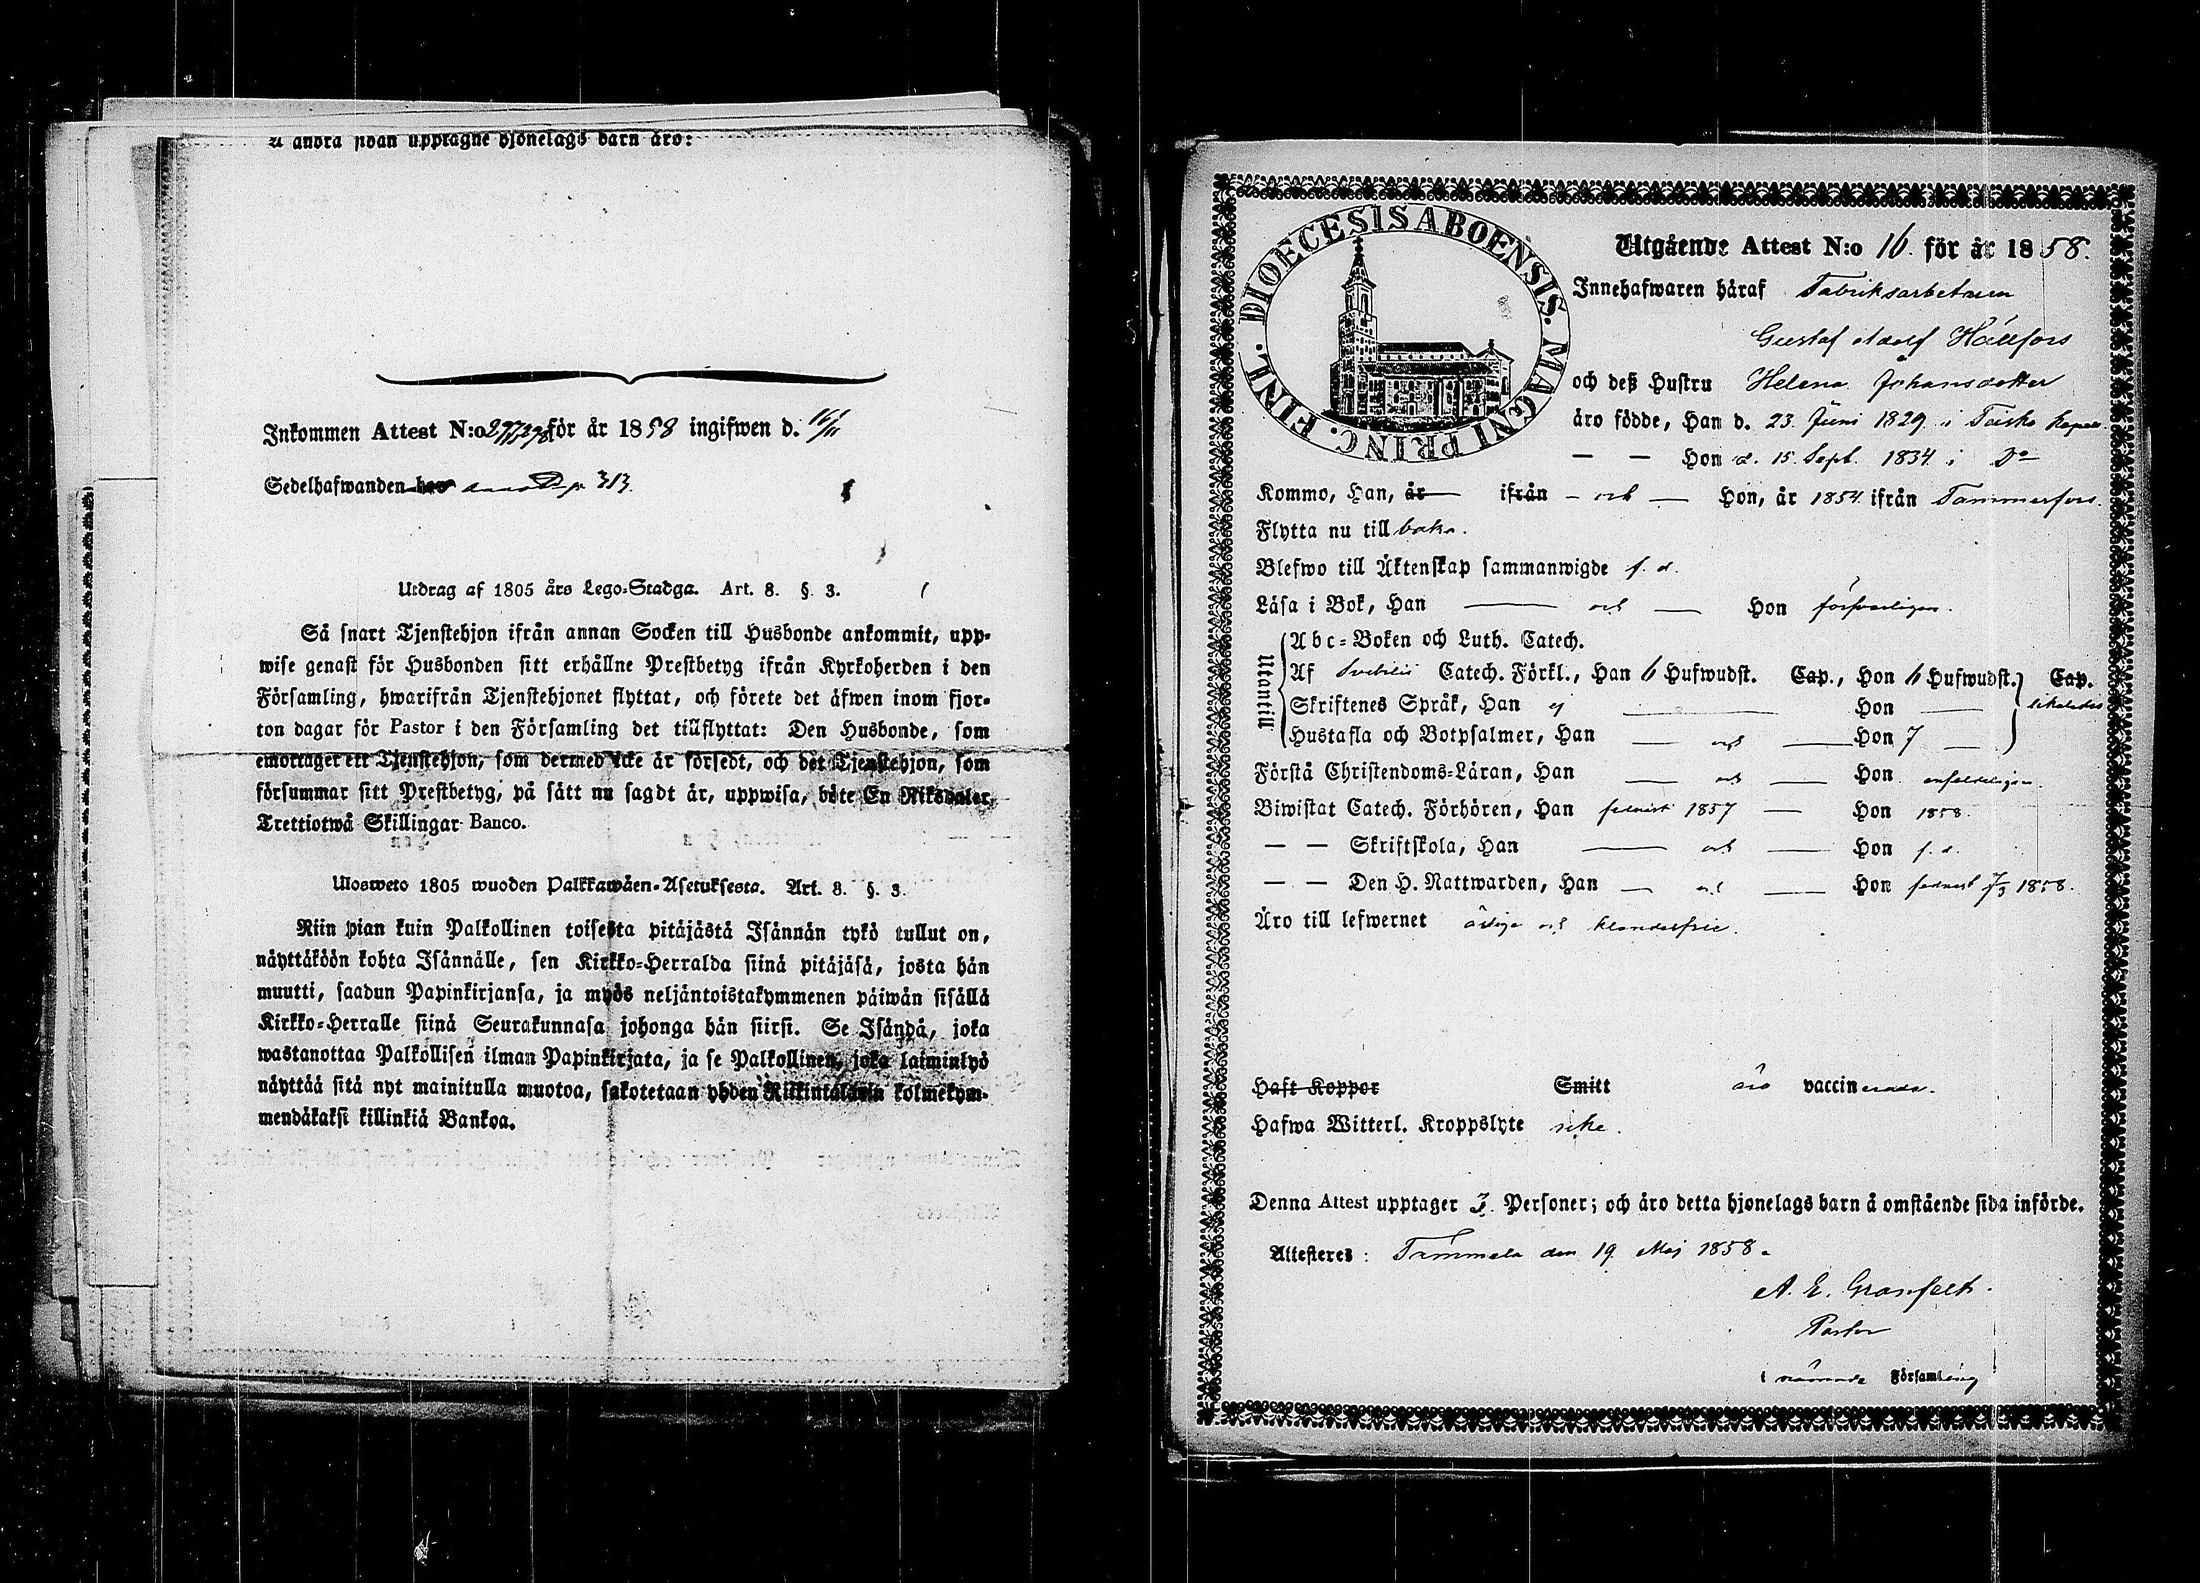 Å andra sidan upptagne hjonelags barn äro:
Inkommen Attest N:o för år 1858 ingifwen d.
Sedelhafwanden p. 313.
Utdrag af 1805 års Lego-Stadga. Art. 8. §. 3.
Så snart Tjenstehjon ifrån annan Socken till Husbonde ankommit, upp-
wise genast för Husbonden sitt erhållne Prestbetyg ifrån Kyrkoherden i den
Församling, hwarifrån Tjenstehjonet flyttat, och förete det äfwen inom fjor-
ton dagar för Pastor i den Församling det tillflyttat: Den Husbonde, som
emottager ett Tjenstehjon, som dermed icke är försedt, och det Tjenstehjon, som
försummar sitt Prestbetyg, på sätt nu sagdt är, uppwisa, böte En Riksdaler,
Trettiotwå Skillingar Banco.
Ulosweto 1805 wuoden Palkkawäen-Asetuksesta. Art. 8. §. 3.
Niin pian kuin Palkollinen toisesta pitäjästä Isännän tykö tullut on,
näyttäköön kohta Isännälle, sen Kirkko-Herralda siinä pitäjäsä, josta hän
muutti, saadun Papinkirjansa, ja myös neljäntoistakymmenen päiwän sisällä
Kirkko-Herralle siinä Seurakunnasa johonga hän siirsi. Se Isändä, joka
wastanottaa Palkollisen ilman Papinkirjata, ja se Palkollinen, joka laiminlyö
näyttää sitä nyt mainitulla muotoa, sakotetaan yhden Riikintalarin kolmekym-
mendäkaksi killinkiä Bankoa.
DIOECESIS ABOENSIS. MAGNI PRINC. FINL.
Utgående Attest N:o 16. för år 1858.
Innehafwaren häraf Fabriksarbetaren
Gustaf Adolf Hällfors
och deß Hustru Helena Johansdotter
äro födde, Han d. 23. Juni 1829 i Teisko kapell
— — Hon d. 15. Sept. 1834 i Do
Kommo, Han, år — ifrån - och — Hon, år 1854 ifrån Tammerfors.
Flytta nu till baka.
Blefwo till Äktenskap sammanwigde f. d.
Läsa i Bok, Han — och — Hon försvarligen.
Utantill
Abc-Boken och Luth. Catech.
Af Svebilii Catech. Förkl., Han 6 Hufwudst. Cap., Hon 6 Hufwudst. Cap.
Skriftenes Språk, Han ej — Hon — likaledes
Hustafla och Botpsalmer, Han — och — Hon 7 —
Förstå Christendoms-Läran, Han — och — Hon enfaldeligen.
Biwistat Catech. Förhören, Han sednast 1857 — Hon 1858.
— — Skriftskola, Han — och — Hon f. d.
— — Den H. Nattwarden, Han — och — Hon sednast 7/3 1858.
Äro till lefwernet ärlige och klanderfrie.
Haft Koppor Smitt äro vaccinerade.
Hafwa Witterl. Kroppslyte icke.
Denna Attest upptager 3. Personer; och äro detta hjonelags barn å omstående sida införde.
Attesteres: Tammela den 19 Maj 1858.
A. E. Granfelt.
Pastor
i nämnde Församling